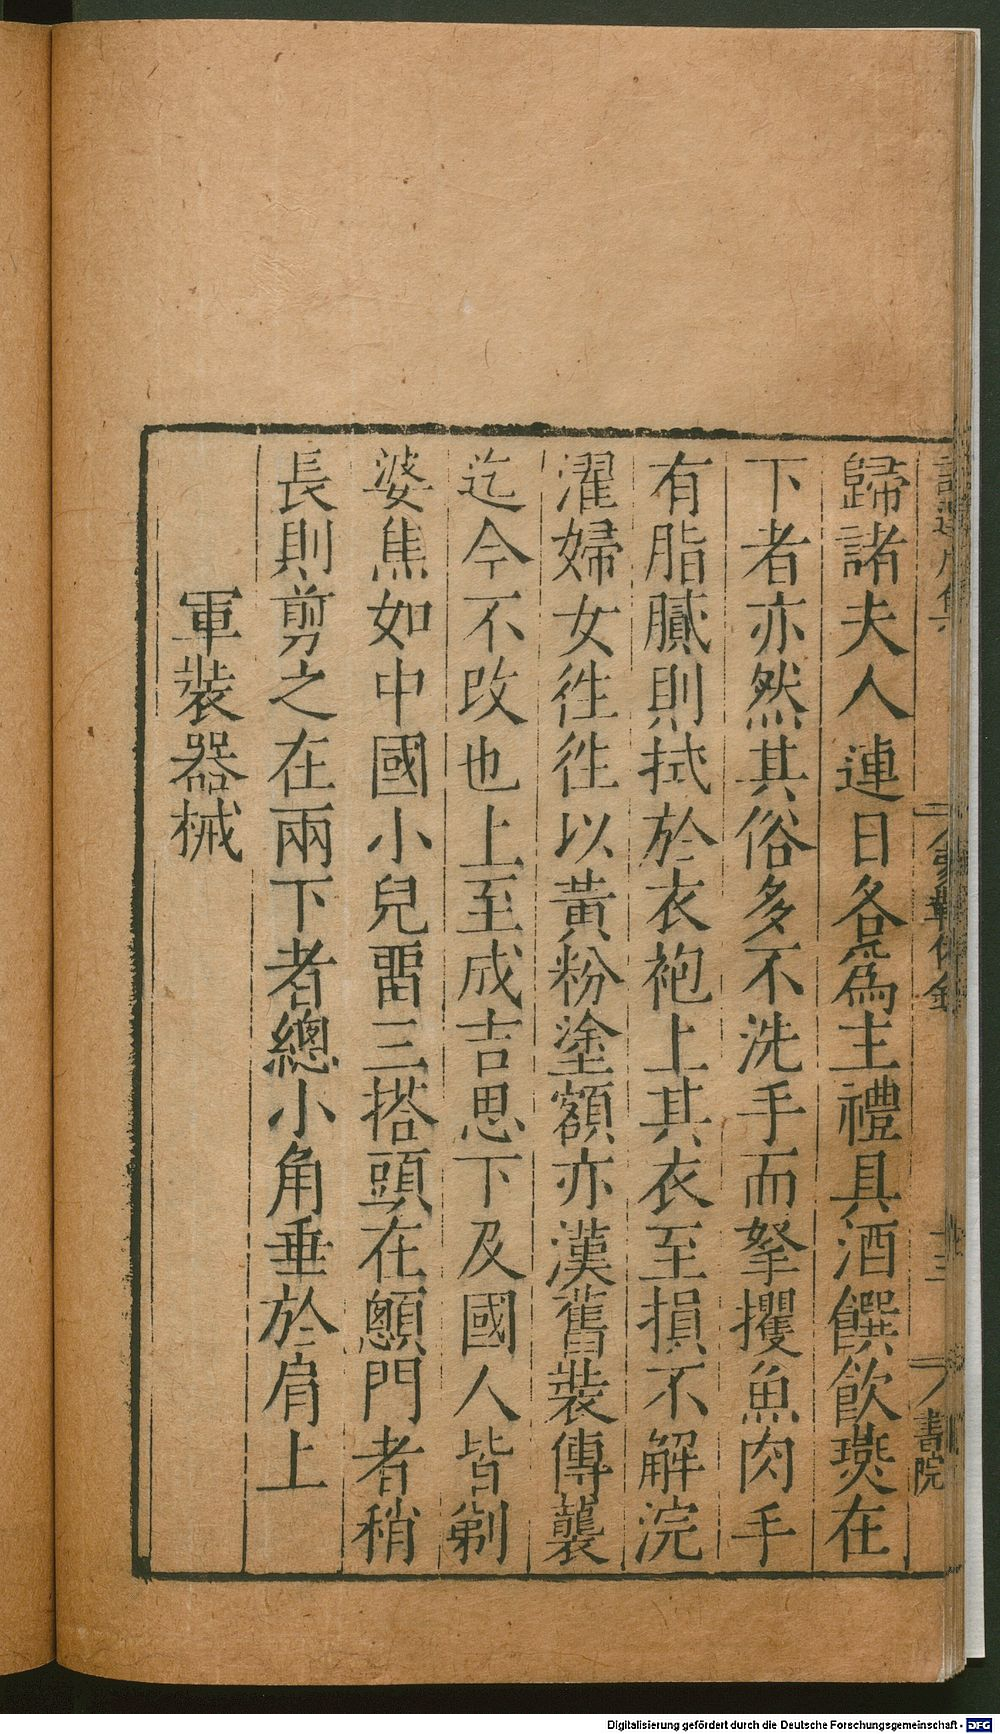 歸諸夫人連日各爲主禮具酒饌飲燕在
下者亦然其俗多不洗手而拏攫魚肉手
有脂膩則拭於衣袍上其衣至損不解浣
濯婦女徃徃以黃粉塗額亦漢舊裝傳襲
迄今不改也上至成吉思下及國人皆剃
婆焦如中國小兒畱三搭頭在顖門者稍
長則剪之在兩下者總小角垂於肩上
軍裝器械
蒙韃備錄
十三
書院
Digitalisierung gefördert durch die Deutsche Forschungsgemeinschaft - DFG